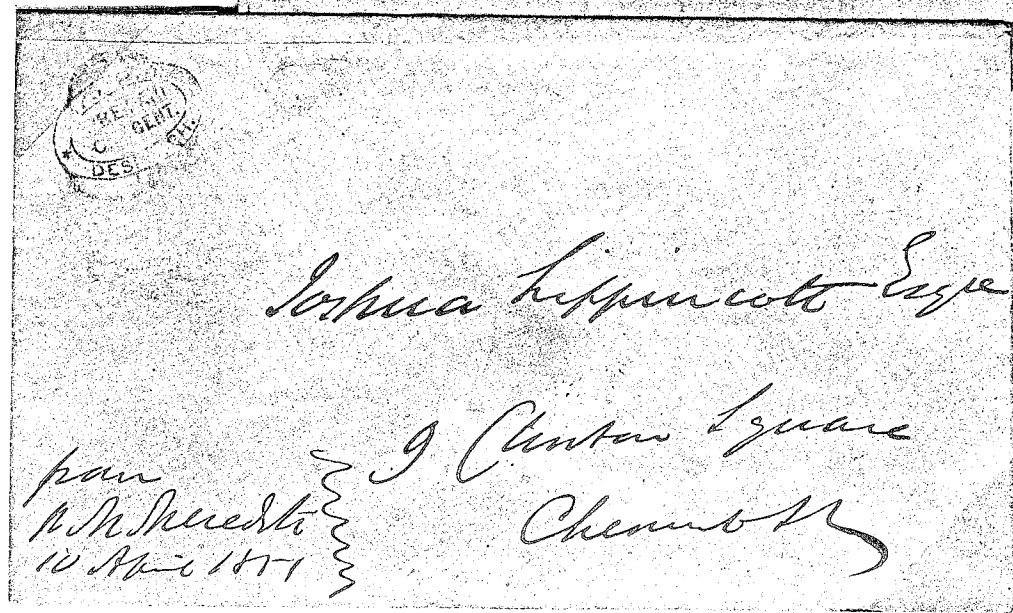 CENT.
DES CH.
Joshua Lippincott Esqre
9 Clinton Square
Chesnut St
from
Meredith
10 April 1851